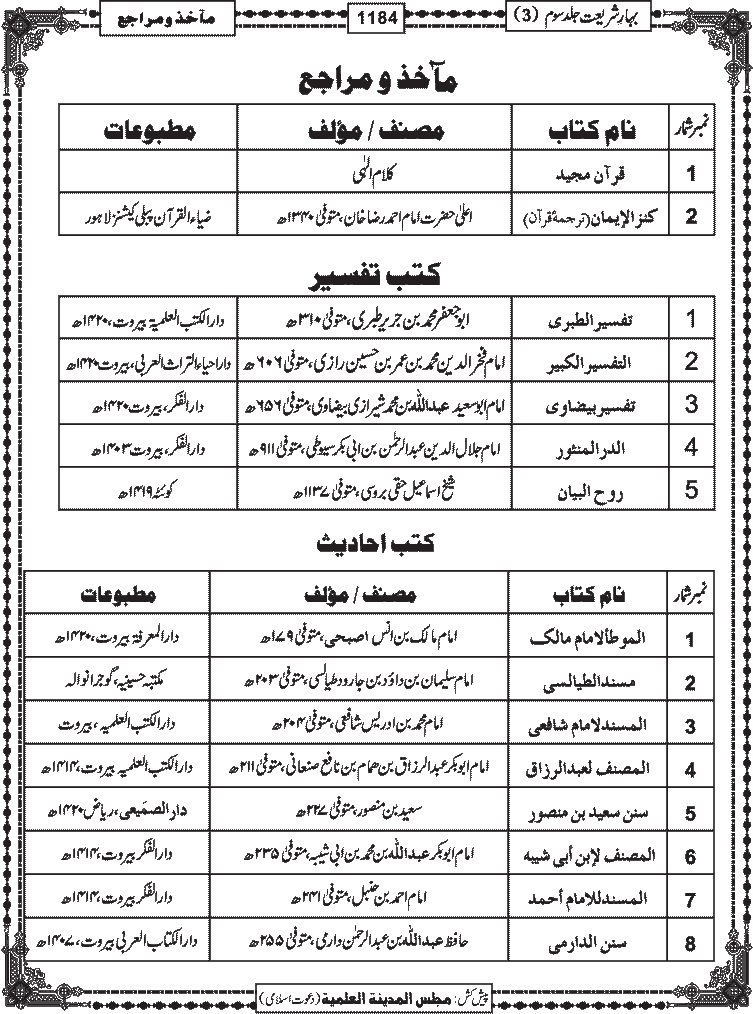 بہارِ شریعت جلد سوم (3) 1184 مآخذ و مراجع
مآخذ و مراجع
نمبر شمار نام کتاب مصنف / مؤلف مطبوعات
1 قرآن مجید کلام الٰہی
2 کنز الإیمان (ترجمۂ قرآن) اعلیٰ حضرت امام احمد رضا خان، متوفیٰ ۱۳۴۰ھ ضیاء القرآن پبلی کیشنز لاہور
کتب تفسیر
1 تفسیر الطبری ابو جعفر محمد بن جریر طبری، متوفیٰ ۳۱۰ھ دار الکتب العلمیۃ بیروت، ۱۴۲۰ھ
2 التفسیر الکبیر امام فخر الدین محمد بن عمر بن حسین رازی، متوفیٰ ۶۰۶ھ دار احیاء التراث العربی، بیروت ۱۴۲۰ھ
3 تفسیر بیضاوی امام ابو سعید عبد اللہ بن محمد شیرازی بیضاوی، متوفیٰ ۶۵۶ھ دار الفکر، بیروت ۱۴۲۰ھ
4 الدر المنثور امام جلال الدین عبد الرحمٰن بن ابی بکر سیوطی، متوفیٰ ۹۱۱ھ دار الفکر، بیروت ۱۴۰۳ھ
5 روح البیان شیخ اسماعیل حقی بروسی، متوفیٰ ۱۱۳۷ھ کوئٹہ ۱۴۱۹ھ
کتب احادیث
نمبر شمار نام کتاب مصنف / مؤلف مطبوعات
1 الموطأ لامام مالک امام مالک بن انس اصبحی، متوفیٰ ۱۷۹ھ دار المعرفۃ بیروت، ۱۴۲۰ھ
2 مسند الطیالسی امام سلیمان بن داؤد بن جارود طیالسی، متوفیٰ ۲۰۳ھ مکتبہ حسینیہ، گوجرانوالہ
3 المسند لامام شافعی امام محمد بن ادریس شافعی، متوفیٰ ۲۰۴ھ دار الکتب العلمیہ، بیروت
4 المصنف لعبد الرزاق امام ابو بکر عبد الرزاق بن ھمام بن نافع صنعانی، متوفیٰ ۲۱۱ھ دار الکتب العلمیہ بیروت، ۱۴۱۴ھ
5 سنن سعید بن منصور سعید بن منصور، متوفیٰ ۲۲۷ھ دار الصمیعی، ریاض ۱۴۲۰ھ
6 المصنف لإبن أبی شیبہ امام ابو بکر عبد اللہ بن محمد بن ابی شیبہ، متوفیٰ ۲۳۵ھ دار الفکر بیروت، ۱۴۱۴ھ
7 المسند للامام أحمد امام احمد بن حنبل، متوفیٰ ۲۴۱ھ دار الفکر بیروت، ۱۴۱۴ھ
8 سنن الدارمی حافظ عبد اللہ بن عبد الرحمٰن دارمی، متوفیٰ ۲۵۵ھ دار الکتاب العربی بیروت، ۱۴۰۷ھ
پیش کش: مجلس المدینة العلمیة (دعوت اسلامی)